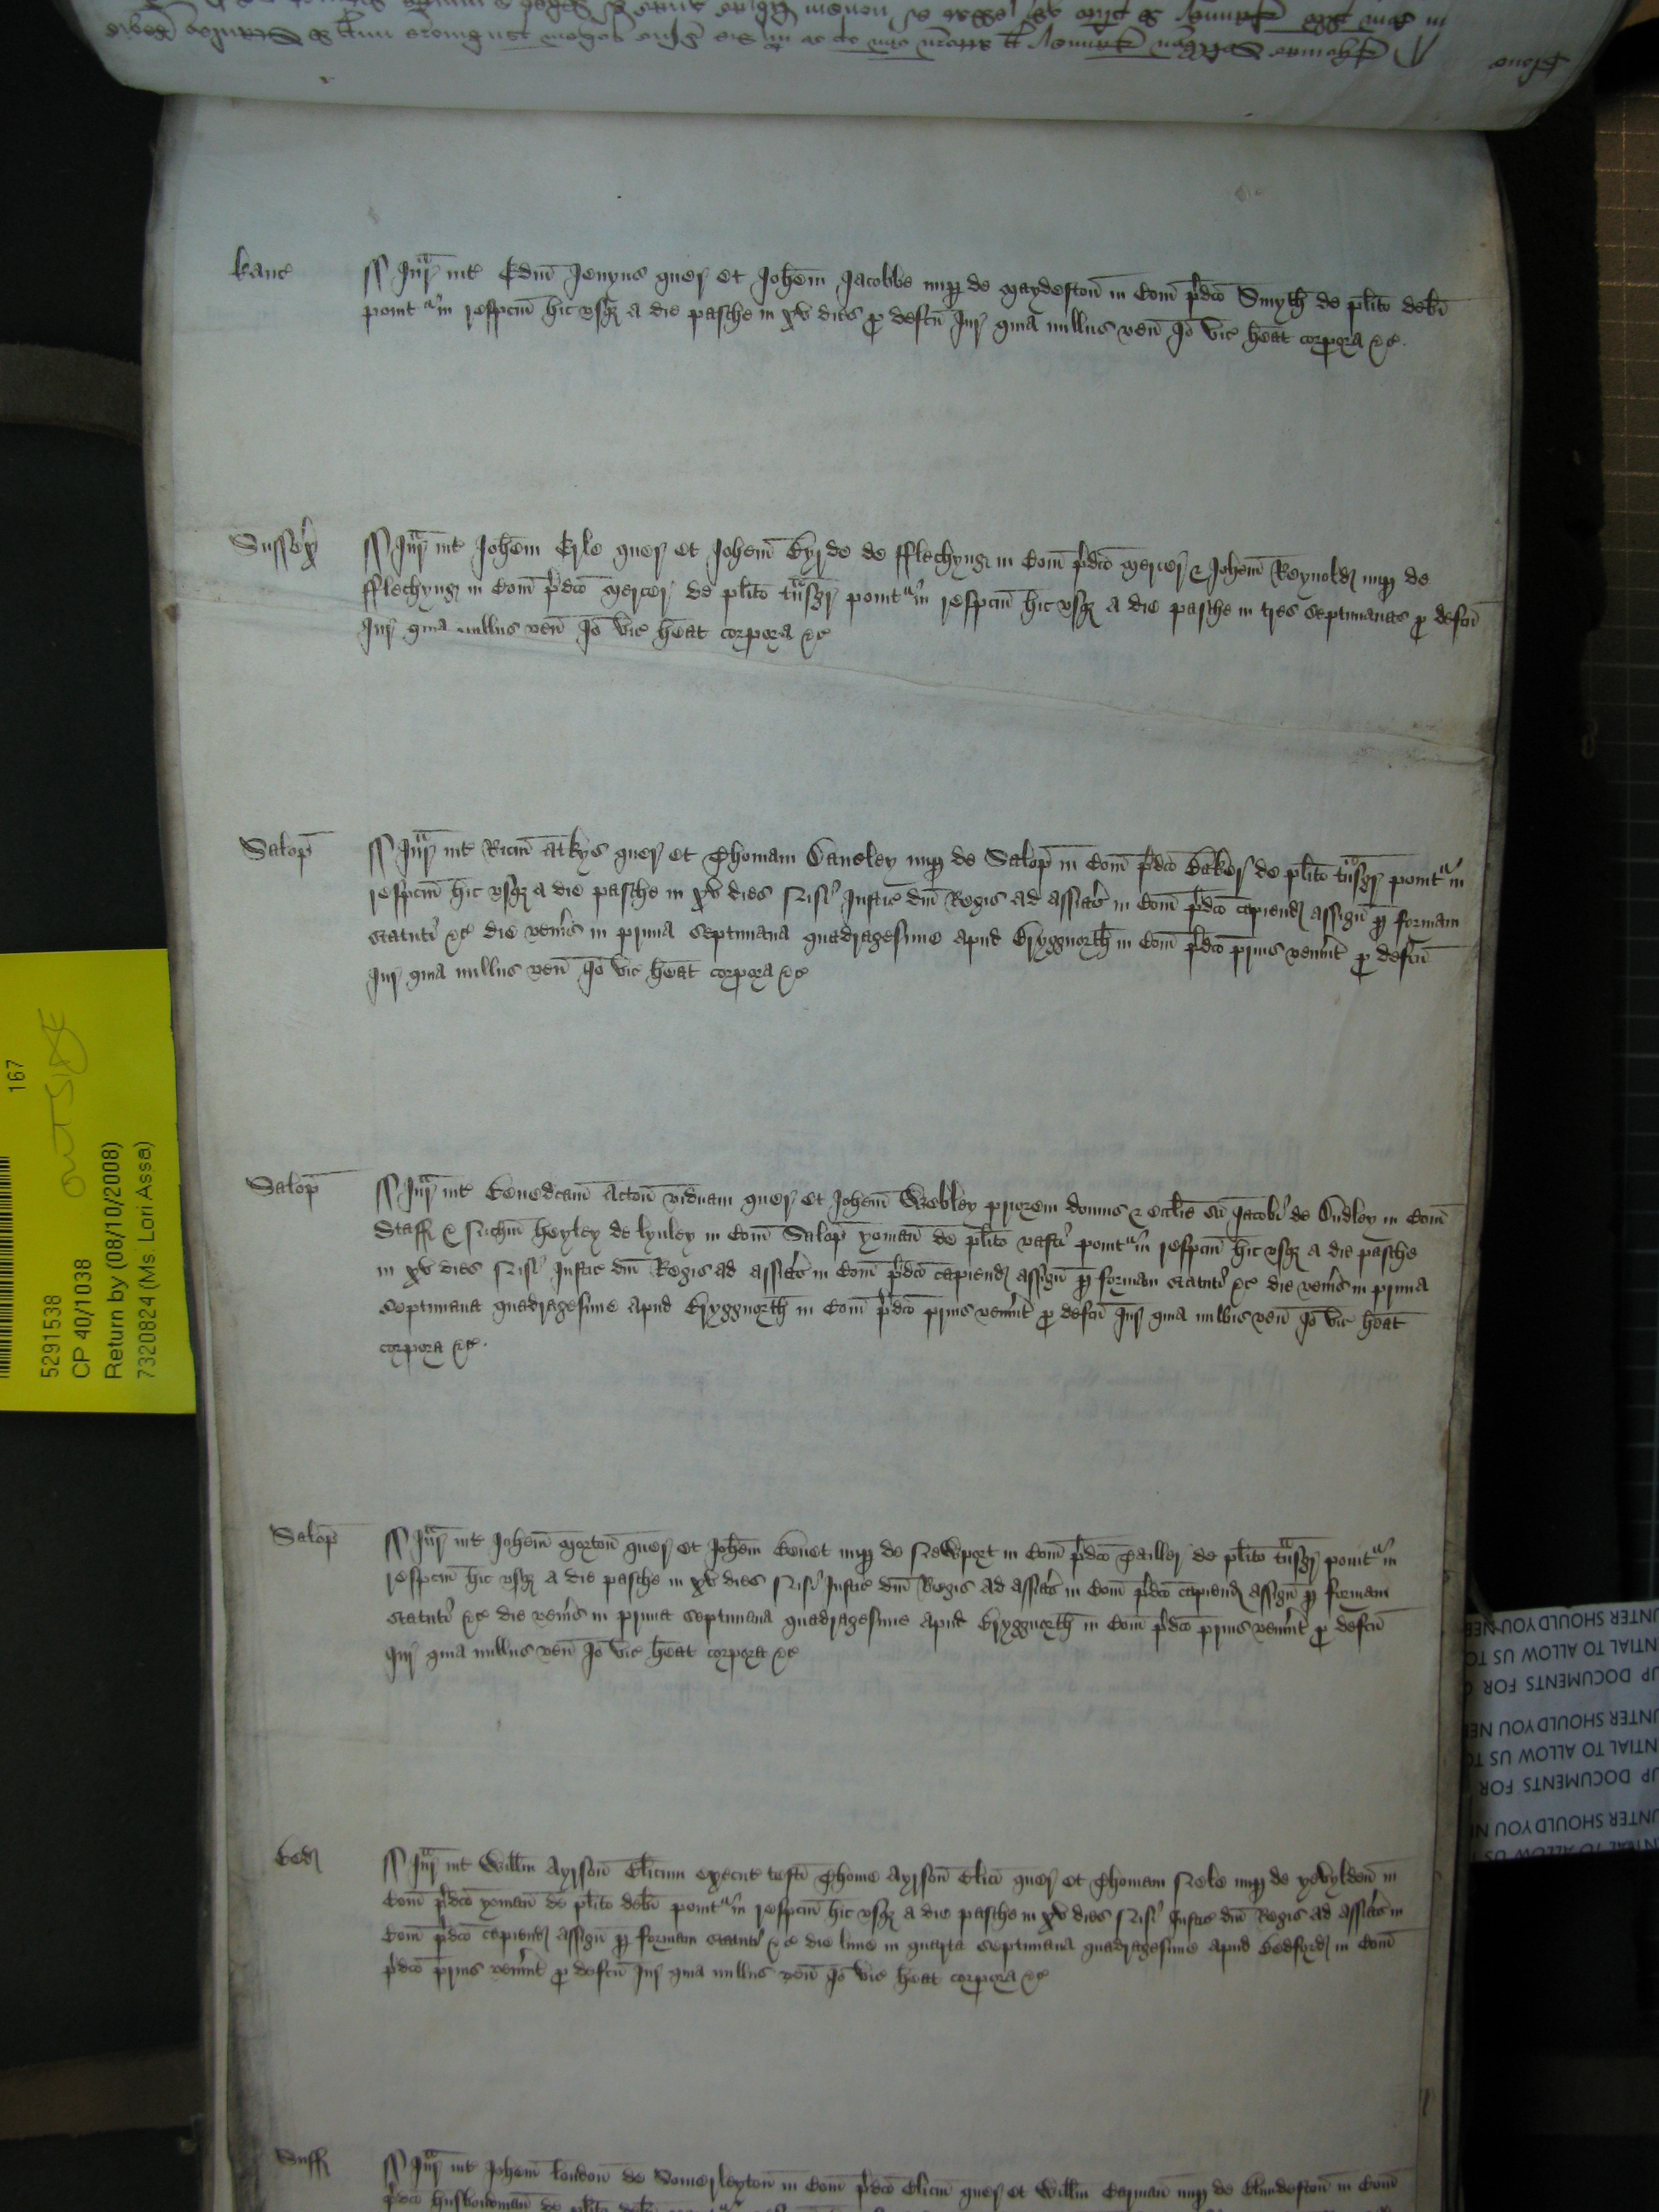 kanc̄
Jur̄ int̄ Edm̄ Jenyns quer̄ et Joh̄em Jacobbe nup̱ de Maydeston̄ in Com̄ p̄dc̄o Smyth de pl̄ito deb̄i
ponit̄ʳ in respc̄m hic usq̨ a die pasche in xv dies p̱ defc̄u Jur̄ quia nullus ven̄ Jō vic̄ h̄eat corpora &c̄
Sussex̄
Jur̄ int̄ Joh̄em Erle quer̄ et Joh̄em Byrde de Fflechyng in Com̄ p̄dc̄o Mercer̄ & Joh̄em Reynold nup̱ de
Fflechyng in Com̄ p̄dc̄o Mercer̄ de pl̄ito t̄nsgr̄ ponit̄ʳ in respc̄m hic usq̨ a die pasche in tres septimanas p̱ defc̄u
Jur̄ quia nullus ven̄ Jō vic̄ h̄eat corpora &c̄
Salop̄
Jur̄ int̄ Ric̄m Atkys quer̄ et Thomam nup̱ de Salop̄ in Com̄ p̄dc̄o Baker̄ de pl̄ito t̄nsgr̄ ponit̄ʳ in
respc̄m hic usq̨ a die pasche in xv dies Nisi Justic̄ dn̄i Regis ad assīas in Com̄ p̄dc̄o capiend̄ assign̄ p̱ formam
statuti &c̄ die ven̄is in prima septimana quadragesime apud Bryggnorth̄ in Com̄ p̄dc̄o prius ven̄int p̱ defc̄u
Jur̄ quia nullus ven̄ Jō vic̄ h̄eat corpora &c̄
Salop̄
Jur̄ int̄ Benedc̄am Acton̄ viduam quer̄ et Joh̄em Webley priorem domus & eccl̄ie sc̄i Jacobi de Dudley in Com̄
Staff̄ & Nich̄m Heyley de lynley in Com̄ Salop̄ yoman̄ de pl̄ito vasti ponit̄ʳ in respc̄m hic usq̨ a die pasche
in xv dies Nisi Justic̄ dn̄i Regis ad assīas in Com̄ p̄dc̄o capiend̄ assign̄ p̱ formam statuti &c̄ die ven̄is in prima
septimana quadragesime apud Bryggnorth̄ in Com̄ p̄dc̄o prius ven̄int p̱ defc̄u Jur̄ quia nullus ven̄ Jō vic̄ h̄eat
corpora &c̄
Salop̄
Jur̄ int̄ Joh̄em Morton̄ quer̄ et Joh̄em Benet nup̱ de Newport in Com̄ p̄dc̄o Tailler̄ de pl̄ito t̄nsgr̄ ponit̄ʳ in
respc̄m hic usq̨ a die pasche in xv dies Nisi Justic̄ dn̄i Regis ad assīas in Com̄ p̄dc̄o capiend̄ assign̄ p̱ formam
statuti &c̄ die ven̄is in prima septimana quadragesime apud Bryggnorth̄ in Com̄ p̄dc̄o prius ven̄int p̱ defc̄u
Jur̄ quia nullus ven̄ Jō vic̄ h̄eat corpora &c̄
Bed̄
Jur̄ int̄ Will̄m Ayrson̄ Cl̄icum execut̄ testi Thome Ayrson̄ Cl̄ici quer̄ et Thomam Nele nup̱ de Yevyldon̄ in
Com̄ p̄dc̄o yoman̄ de pl̄ito deb̄i ponit̄ʳ in respc̄m hic usq̨ a die pasche in xv dies Nisi Justic̄ dn̄i Regis ad assīas in
Com̄ p̄dc̄o capiend̄ assign̄ p̱ formam statuti &c̄ die lune in quarta septimana quadragesime apud Bedford̄ in Com̄
p̄dc̄o prius ven̄int p̱ defc̄u Jur̄ quia nullus ven̄ Jō vic̄ h̄eat corpora &c̄
Suff̄
Jur̄ int̄ Joh̄em london̄ de Somerleyton̄ in Com̄ p̄dc̄o Cl̄icum quer̄ et Will̄m Carman̄ nup̱ de Blundeston̄ in Com̄
p̄dc̄o husbondman̄ de pl̄ito
167
OUTSIZE
5291538
CP 40/1038
Return by (08/10/2008)
7320824 (Ms. Lori Assa)
UNTER SHOULD YOU NEE
NTIAL TO ALLOW US TO
UP DOCUMENTS FOR
UNTER SHOULD YOU NEE
NTIAL TO ALLOW US TO
UP DOCUMENTS FOR
UNTER SHOULD YOU N